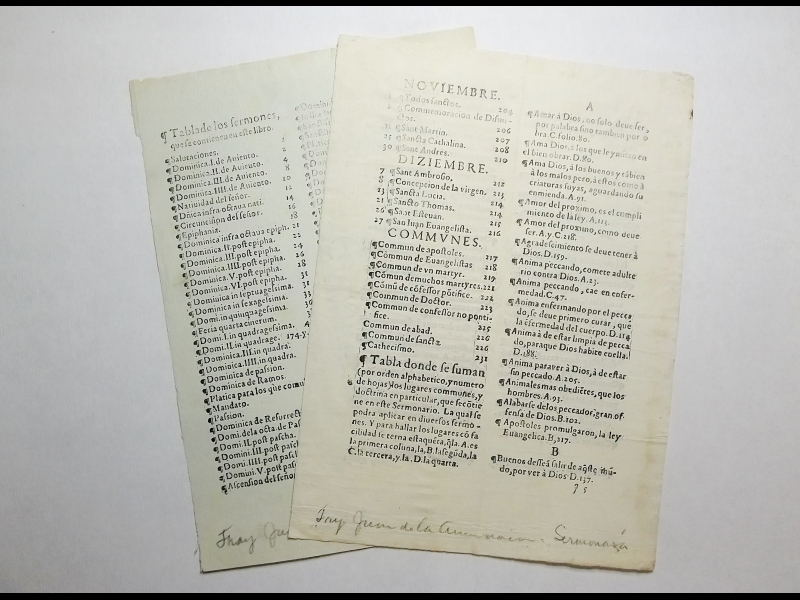 ¶ Tabla de los sermones,
que se contienen en este libro.
¶ Salutaciones. 1
¶ Dominica.I. de Auiento. 2
¶ Dominica.II. de Auiento. 4
¶ Dominica.III. de Auiento. 8
¶ Dominica.IIII. de Auiento. 10
¶ Natiuidad del señor. 12
¶ Dñica infra octaua nati. 14
¶ Circuncisiõ del señor. 16
¶ Epiphania. 18
¶ Dominica infra octaua epiph. 21
¶ Dominica.II. post epipha. 22
¶ Dominica.III. post epipha. 24
¶ Dominica.IIII. post epipha. 26
¶ Dominica.V. post epipha. 28
¶ Dominica.VI. post epipha. 31
¶ Dominica in septuagessima. 31
¶ Dominica in sexagessima. 33
¶ Domi. in quinquagessima.
¶ Feria quarta cinerum.
¶ Domi.I. in quadragessima.
¶ Domi.II. in quadrage. 174.y
¶ Dominica.III. in quadra.
¶ Dominica.IIII. in quadra.
¶ Dominica de passion.
¶ Dominica de Ramos.
¶ Platica para los q̃ue comu
¶ Mandato.
¶ Passion.
¶ Dominica de Resurrect
¶ Domi. dela octa. de Pas
¶ Domi.II. post pascha.
¶ Domi.III. post pascha.
¶ Domi.IIII. post pascha
¶ Domini.V. post pasc
¶ Ascension del señor
Fray Ju
NOVIEMBRE.
1 ¶ Todos sanctos. 204
2 ¶ Commemoracion de Difun-
ctos. 206
11 ¶ Sant Martin. 207
25 ¶ Sancta Cathalina. 208
30 ¶ Sant Andres. 210
DIZIEMBRE.
7 ¶ Sant Ambrosio. 212
8 ¶ Concepcion de la virgen. 213
13 ¶ Sancta Lucia. 214
21 ¶ Sancto Thomas. 214
26 ¶ Sant Esteuan. 215
27 ¶ San Iuan Euangelista. 216
COMMVNES.
¶ Commun de apostoles. 217
¶ Cõmun de Euangelistas 218
¶ Commun de vn martyr. 219
¶ Cõmun de muchos martyres. 221
¶ Cõmũ de cõfessor põtifice. 222
¶ Commun de Doctor. 223
¶ Commun de confessor no ponti-
fice. 225
Commun de abad. 226
¶ Commun de sanctæ 226
¶ Cathecismo. 231
¶ Tabla donde se suman
(por orden alphabetico, y numero
de hojas) los lugares communes, y
doctrina en particular, que se cõtie
ne en este Sermonario. La qual se
podra aplicar en diuersos sermo-
nes. Y para hallar los lugares cõ fa
cilidad se terna esta quẽta, q̃ la. A. es
la primera coluna, la, B. la segũda, la
C. la tercera, y. la. D. la quarta.
A
¶ Amar à Dios, no solo deue ser,
por palabra sino tambien por o
bra. C. folio. 80.
¶ Ama Dios, à los que le ymitan en
el bien obrar. D. 80.
¶ Ama Dios, à los buenos y tãbien
à los malos pero, à estos como à
criaturas suyas, aguardando su
enmienda. A. 91.
¶ Amor del proximo, es el cumpli
miento de la ley. A. 113.
¶ Amor del proximo, como deue
ser. A. y C. 218.
¶ Agradescimiento se deue tener à
Dios. D. 159.
¶ Anima peccando, comete adulte
rio contra Dios. A. 23.
¶ Anima peccando, cae en enfer-
medad. C. 47.
¶ Anima enfermando por el pecca
do, se deue primero curar, que
la enfermedad del cuerpo. D. 114
¶ Anima à de estar limpia de pecca
do, para que Dios habite en ella.
D. 188.
¶ Anima para ver à Dios, à de estar
sin peccado. A. 205.
¶ Animales mas obediẽtes, que los
hombres. A. 93.
¶ Alabarse de los peccados, gran of-
fensa de Dios. B. 102.
¶ Apostoles promulgaron, la ley
Euangelica. B, 217.
B
¶ Buenos desseã salir de aq̃ste mũ-
do, por ver à Dios D. 137.
Fray Juan de la Anunciacion. Sermonario